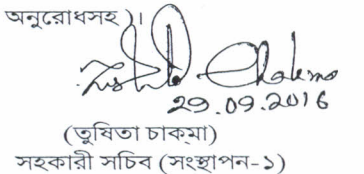 অনুরোধসহ)।
Tushita Chakma
29.09.2016
(তুষিতা চাকমা)
সহকারী সচিব (সংস্থাপন-১)